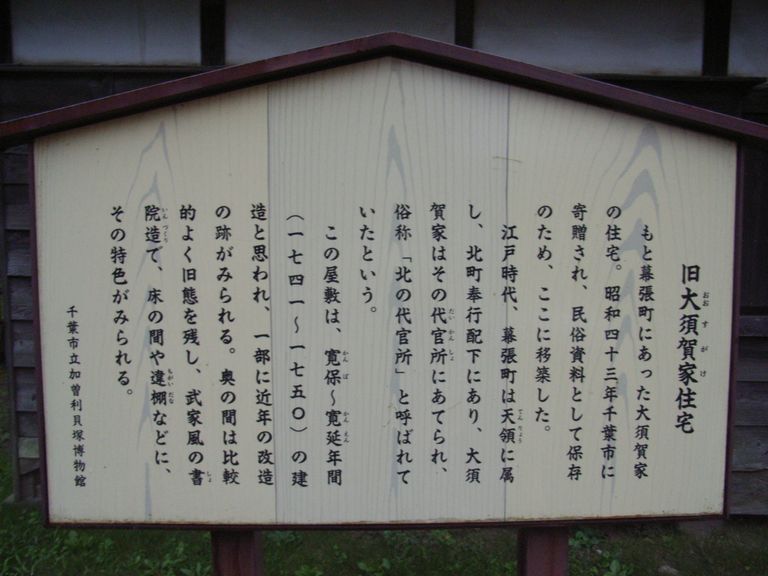 旧大須賀家住宅
もと幕張町にあった大須賀家
の住宅。昭和四十三年千葉市に
寄贈され、民俗資料として保存
のため、ここに移築した。
江戸時代、幕張町は天領に属
し、北町奉行配下にあり、大須
賀家はその代官所にあてられ、
俗称「北の代官所」と呼ばれて
いたという。
この屋敷は、寛保〜寛延年間
（一七四一〜一七五〇）の建
造と思われ、一部に近年の改造
の跡がみられる。奥の間は比較
的よく旧態を残し、武家風の書
院造で、床の間や違棚などに、
その特色がみられる。
千葉市立加曽利貝塚博物館